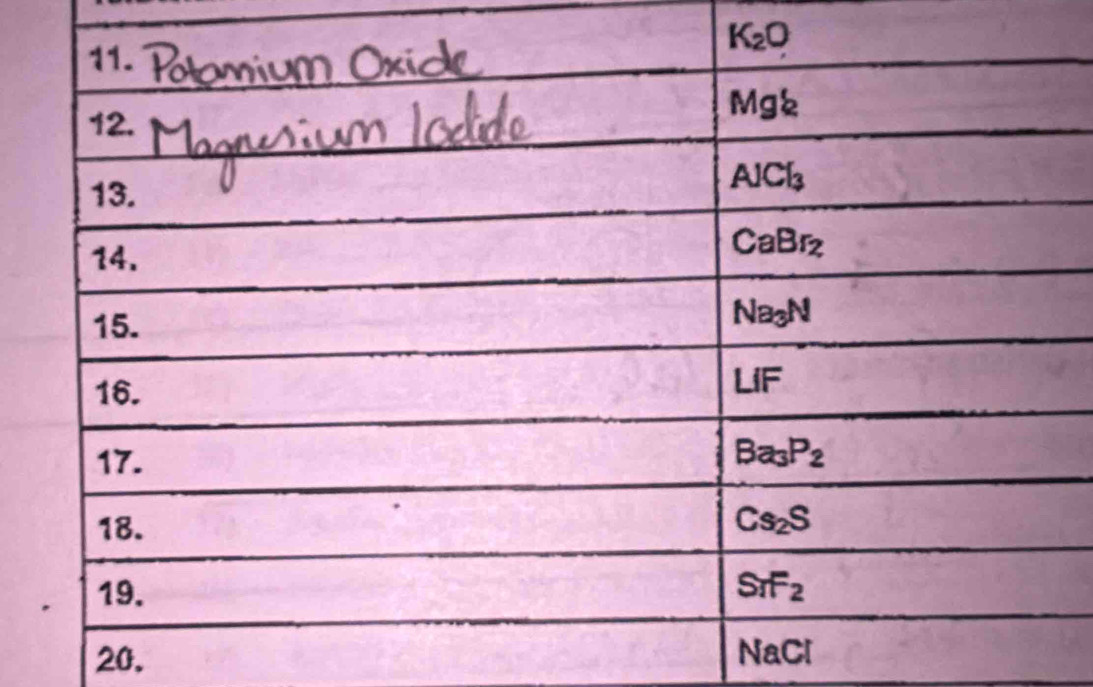 11. Potassium Oxide K₂O
12. Magnesium Iodide MgI₂
13. AlCl₃
14. CaBr₂
15. Na₃N
16. LiF
17. Ba₃P₂
18. Cs₂S
19. SrF₂
20. NaCl